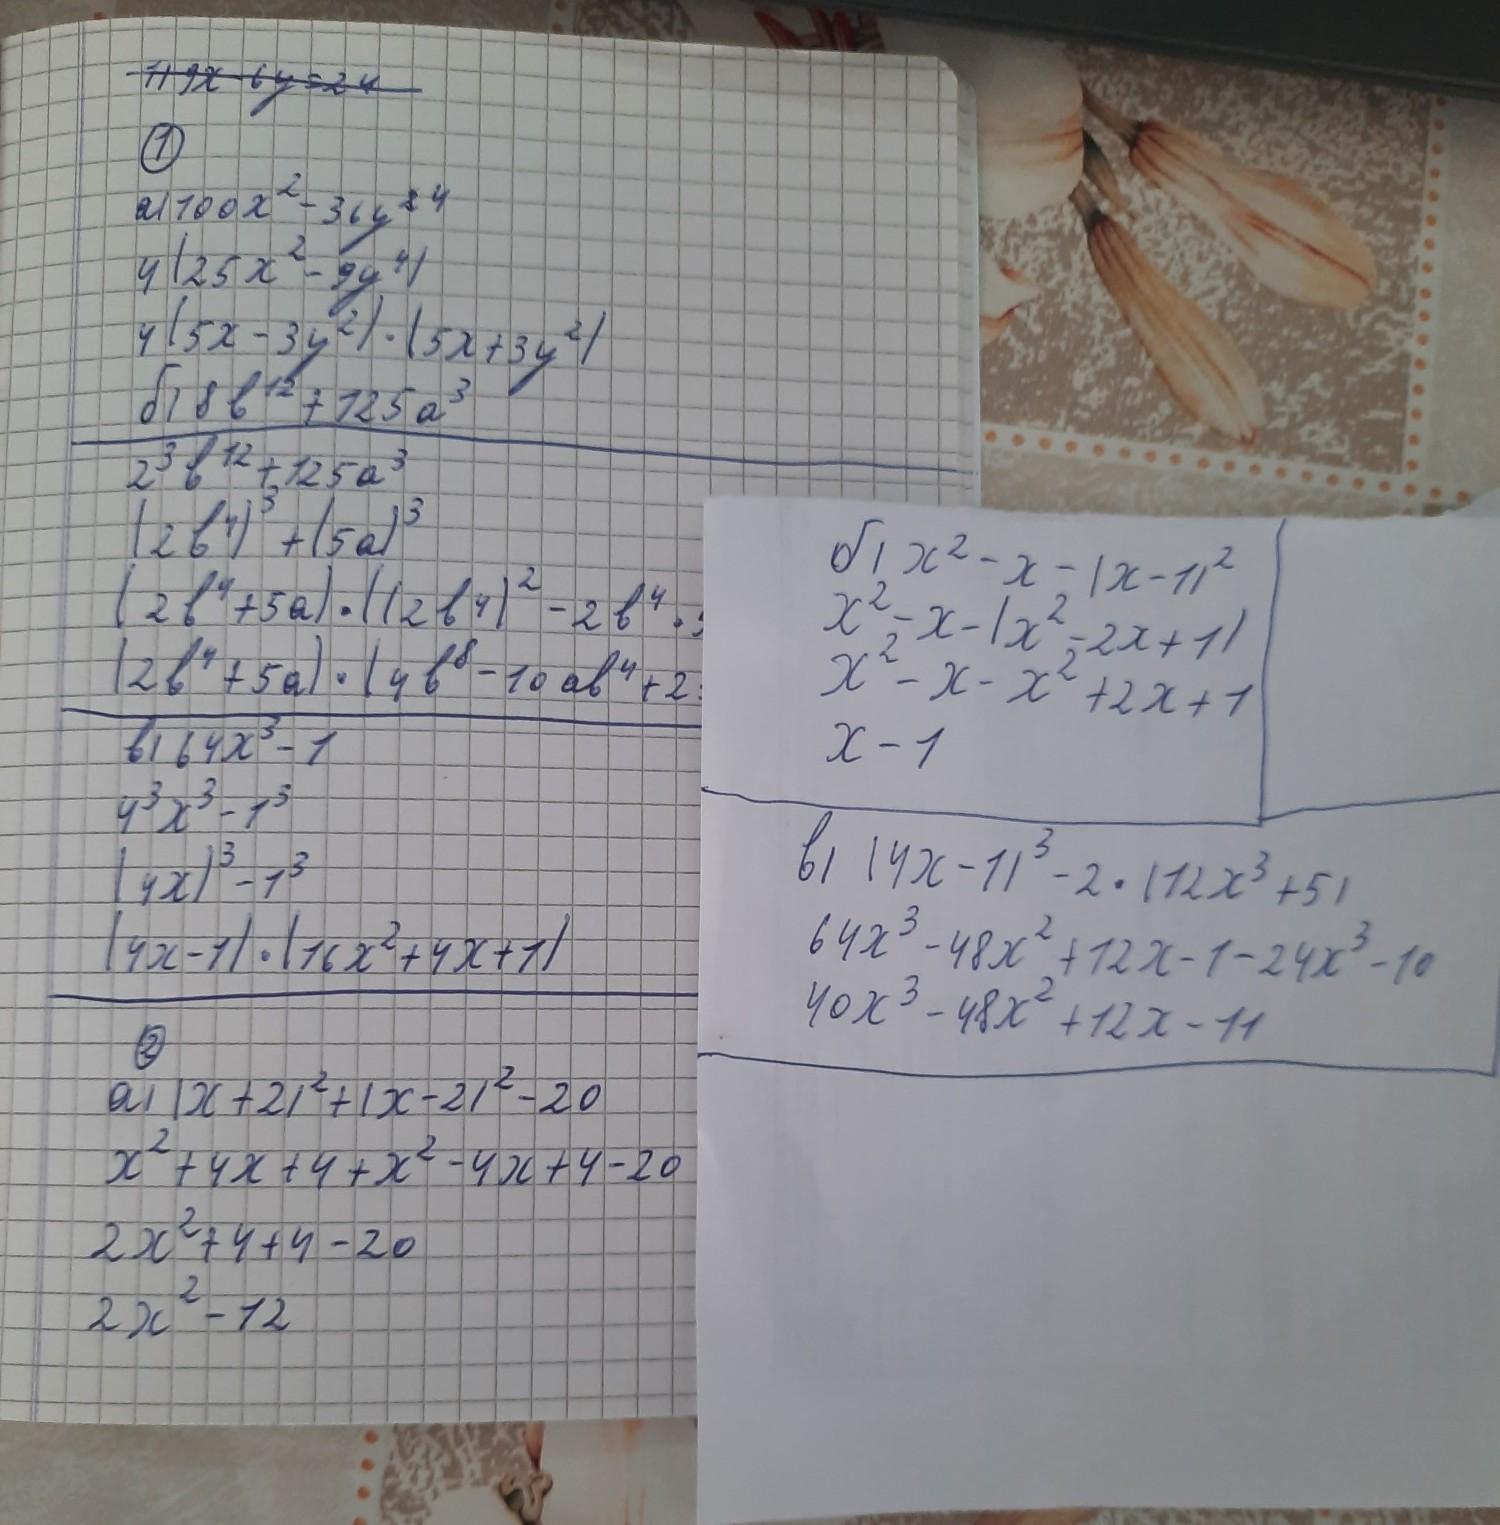 1) 9x-6y=24
①
а) 100x²-36y⁴
4(25x²-9y⁴)
4(5x-3y²)·(5x+3y²)
б) 8b¹²+125a³
2³b¹²+125a³
(2b⁴)³+(5a)³
(2b⁴+5a)·((2b⁴)²-2b⁴·
(2b⁴+5a)·(4b⁸-10ab⁴+2
в) 64x³-1
4³x³-1³
(4x)³-1³
(4x-1)·(16x²+4x+1)
②
а) (x+2)²+(x-2)²-20
x²+4x+4+x²-4x+4-20
2x²+4+4-20
2x²-12
б) x²-x-(x-1)²
x²-x-(x²-2x+1)
x²-x-x²+2x+1
x-1
в) (4x-1)³-2·(12x³+5)
64x³-48x²+12x-1-24x³-10
40x³-48x²+12x-11